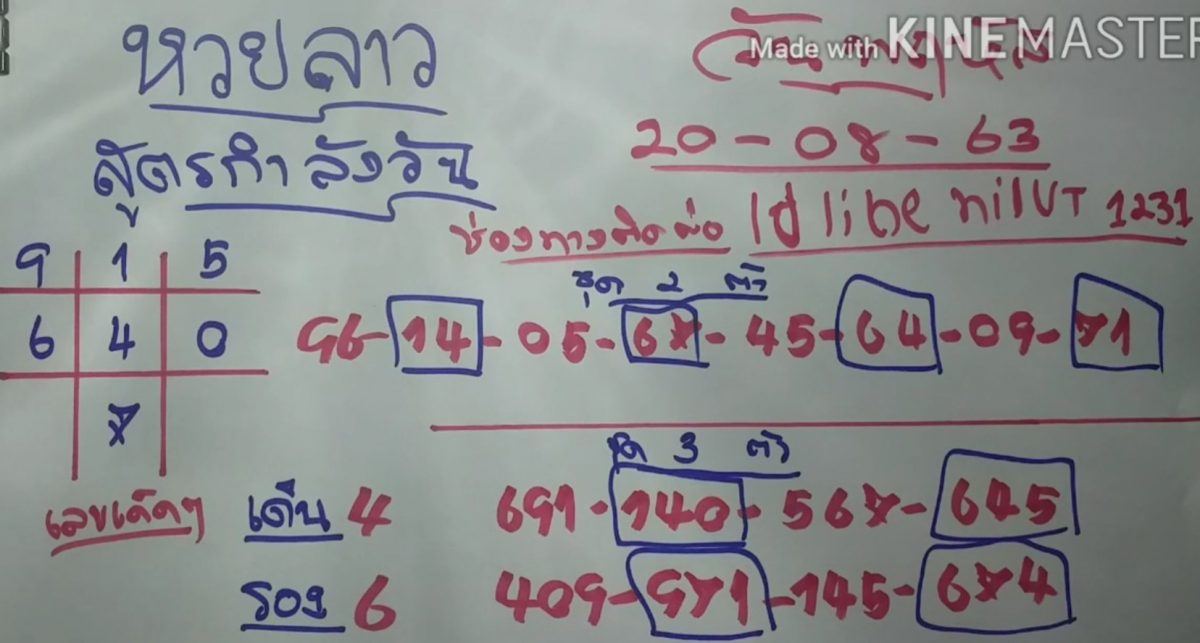 Made with KINEMASTER
หวยลาว
วันพฤหัส
สูตรกำลังวัน
20-08-63
ช่องทางติดต่อ Id line nilUT 1231
9 1 5
6 4 0
7
ชุด 2 ตัว
96-14-05-67-45-64-09-71
ชุด 3 ตัว
เลขเด็ดๆ
เด่น 4
691-140-567-645
รอง 6
409-971-145-674